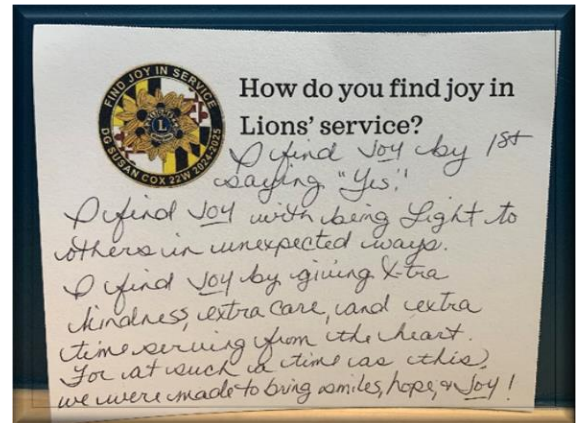 FIND JOY IN SERVICE
L
DG SUSAN COX 22W 2024-2025
How do you find joy in
Lions' service?
I find Joy by 1st
saying "Yes!"
I find Joy with being Light to
others in unexpected ways.
I find Joy by giving X-tra
kindness, extra care, and extra
time serving from the heart.
For at such a time as this,
we were made to bring smiles, hope, & Joy!